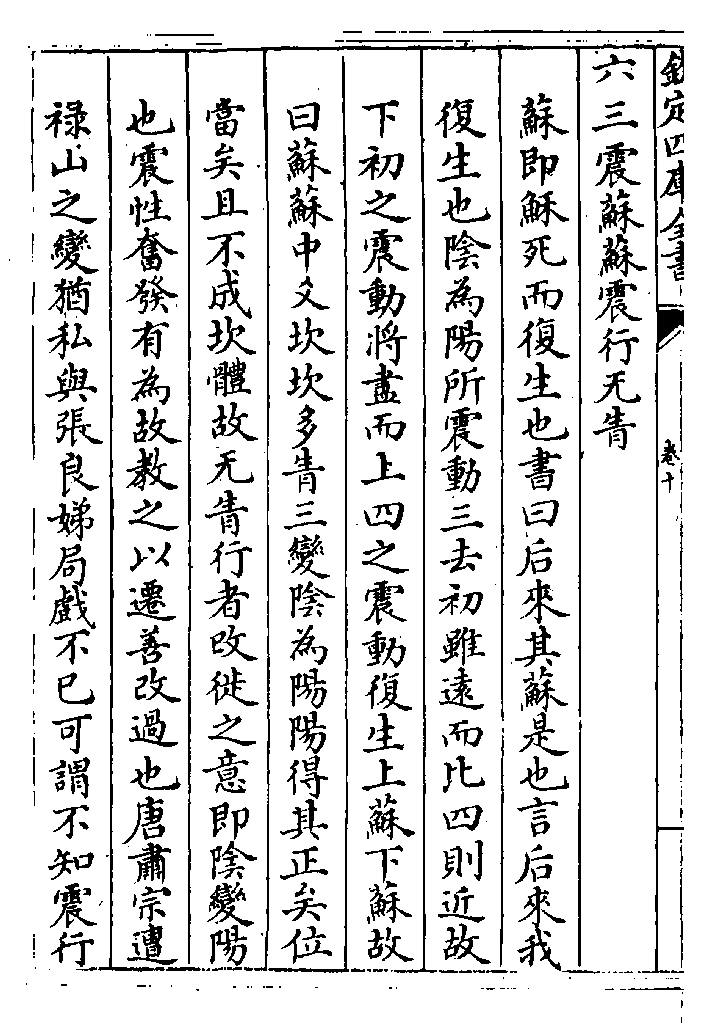 欽定四庫全書
卷十
六三震蘇蘇震行无眚
蘇即穌死而復生也書曰后來其蘇是也言后來我
復生也陰為陽所震動三去初雖遠而比四則近故
下初之震動將盡而上四之震動復生上蘇下蘇故
曰蘇蘇中爻坎坎多眚三變陰為陽陽得其正矣位
當矣且不成坎體故无眚行者改徙之意即陰變陽
也震性奮發有為故教之以遷善改過也唐肅宗遭
祿山之變猶私與張良娣局戲不已可謂不知震行